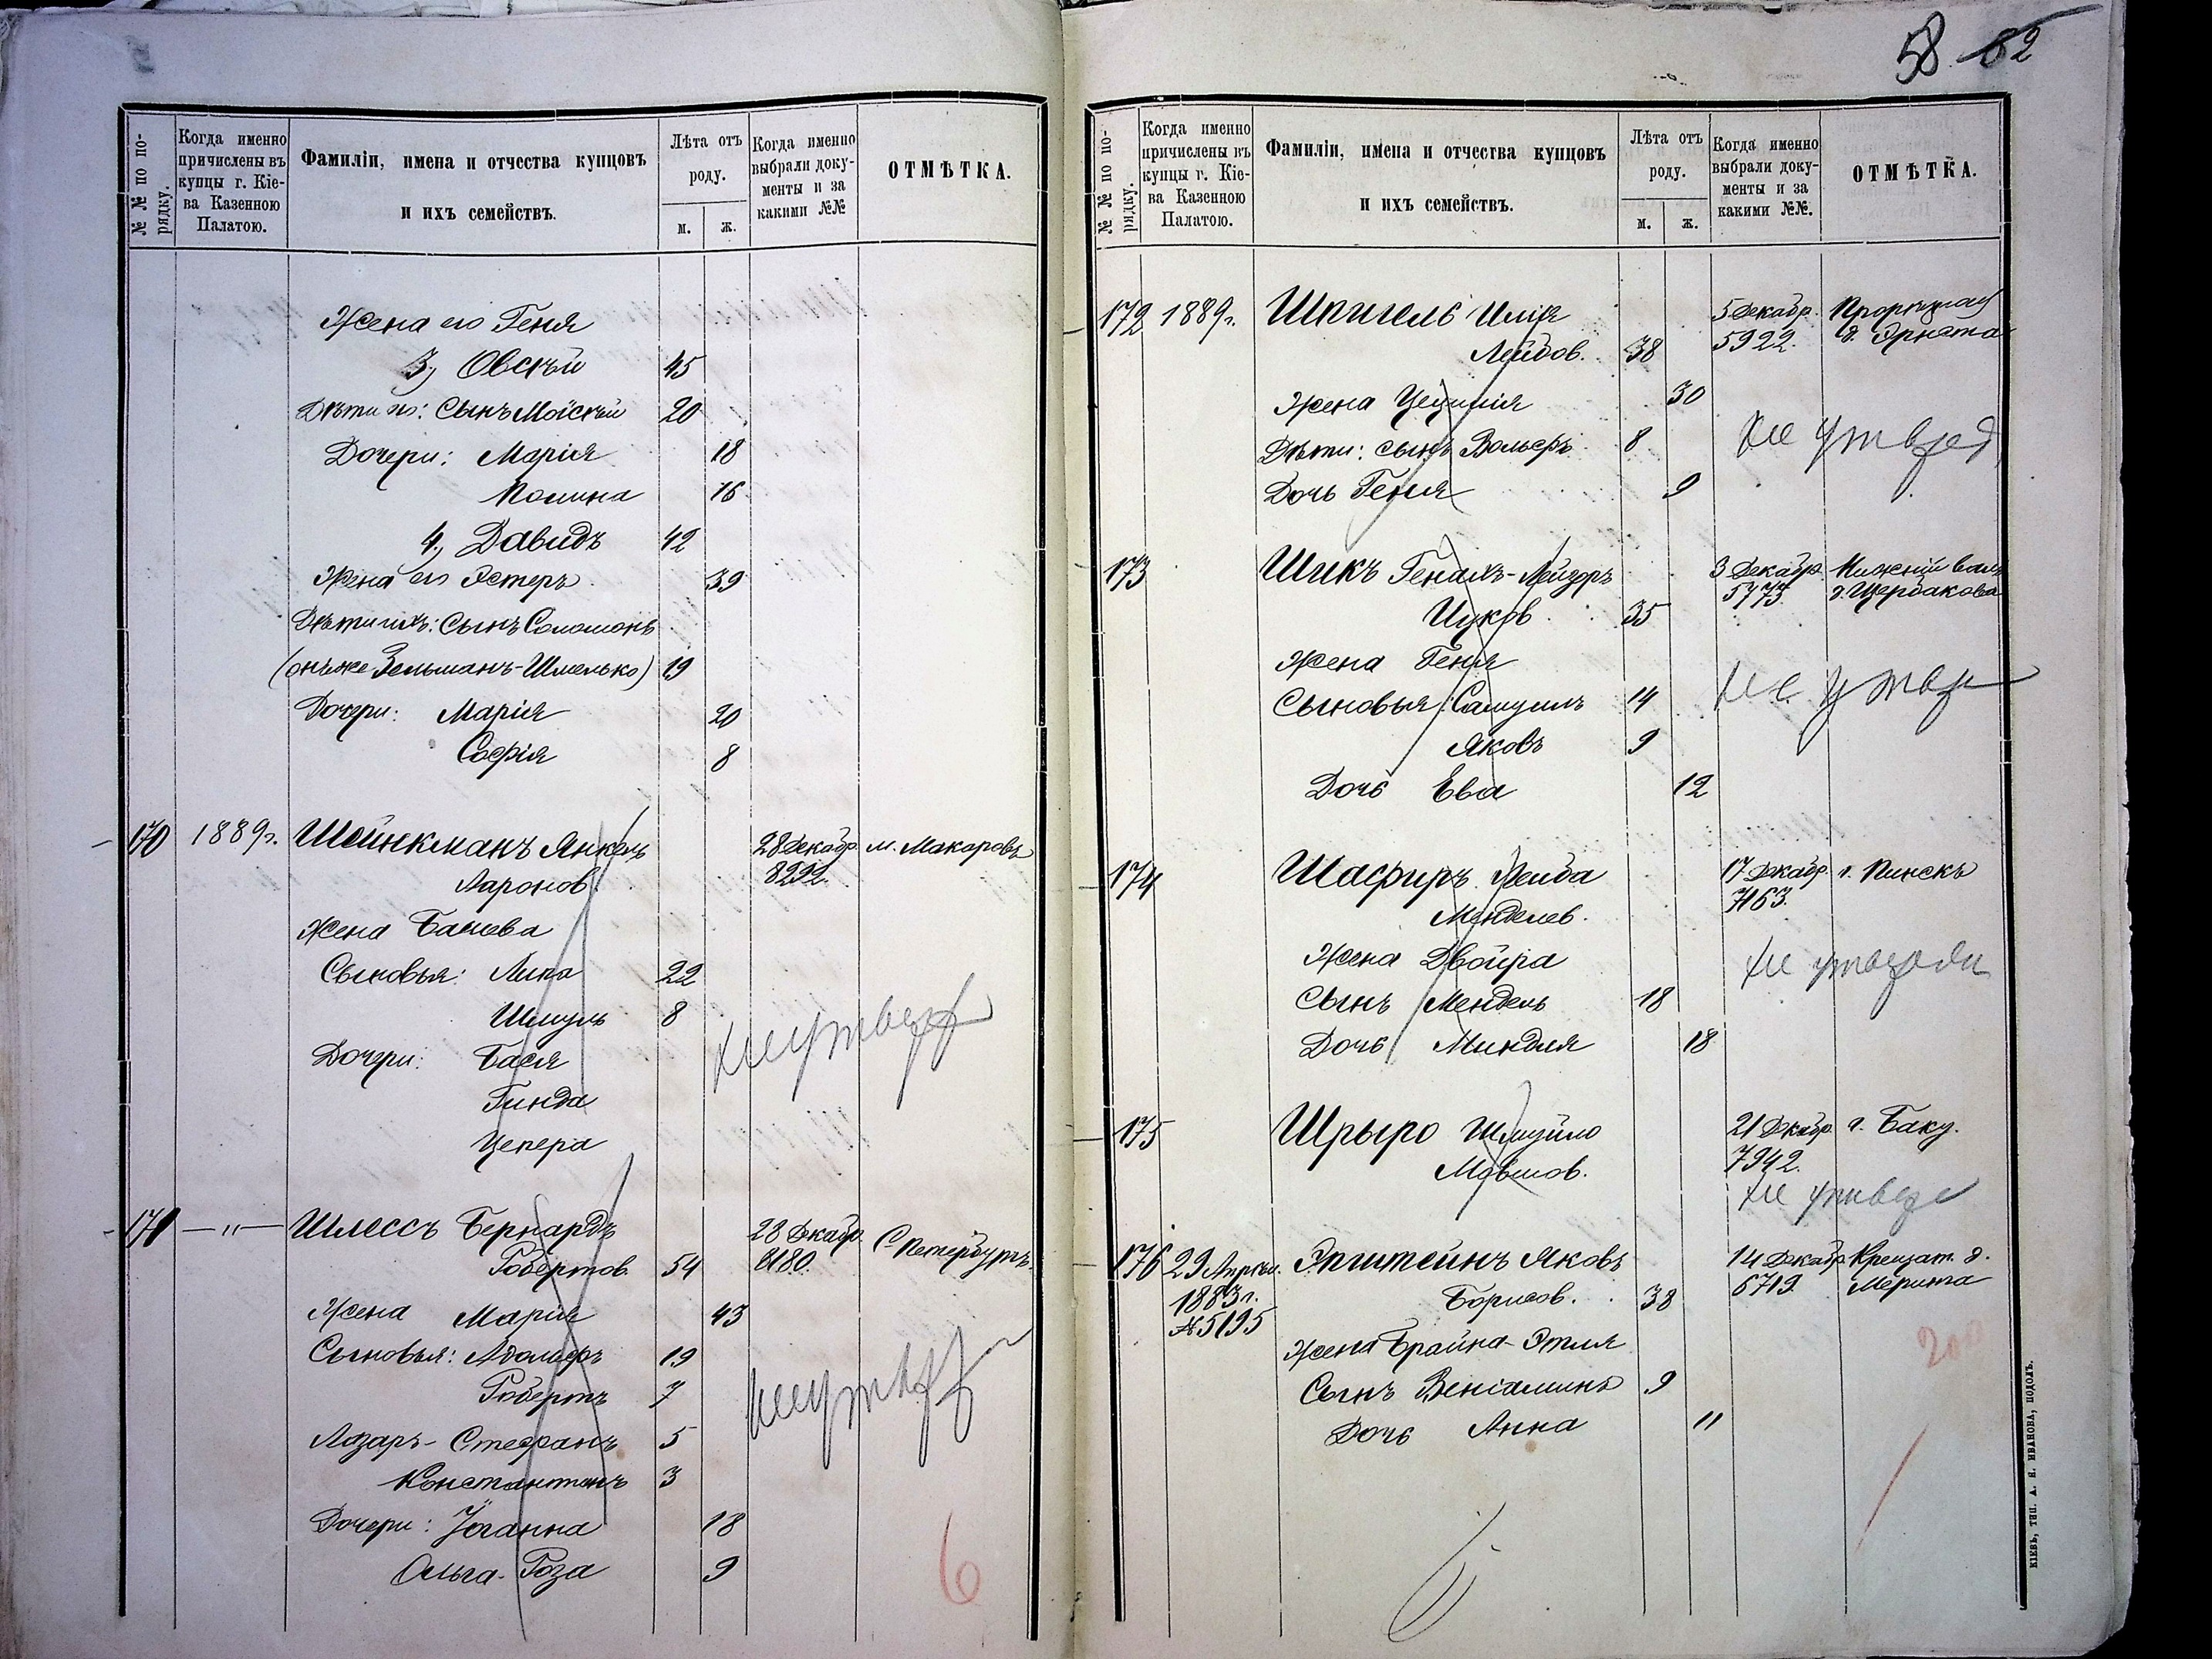 58 82
№№ по порядку.
Когда именно причислены въ купцы г. Кіева Казенною Палатою.
Фамиліи, имена и отчества купцовъ и ихъ семействъ.
Лѣта отъ роду.
м. ж.
Когда именно выбрали документы и за какими №№
ОТМѢТКА.
Жена его Геня
3, Овсѣй 45
Дѣти его: Сынъ Мойсѣй 20
Дочери: Марія 18
Полина 16
4, Давидъ 42
Жена его Эстеръ 39
Дѣти ихъ: Сынъ Соломонъ
(онъ же Зельманъ-Шмелько) 19
Дочери: Марія 20
Софія 8
170 1889г. Шейнкманъ Янкель 28 Декабр. м. Макаровъ
Ааронов. 8292
Жена Башева
Сыновья: Липа 22
Шмуль 8
не утверж
Дочери: Бася
Гинда
Ципера
171 —"— Шлессъ Бернардъ 28 Декабр. С-Петербургъ.
Робертов. 54 8180
Жена Марія 43
Сыновья: Адольфъ 19
Робертъ 7
не утверж
Лазарь-Стефанъ 5
Константинъ 3
Дочери: Іоганна 18
Ольга-Роза 9
6
№№ по порядку.
Когда именно причислены въ купцы г. Кіева Казенною Палатою.
Фамиліи, имена и отчества купцовъ и ихъ семействъ.
Лѣта отъ роду.
м. ж.
Когда именно выбрали документы и за какими №№.
ОТМѢТКА.
172 1889г. Шпигель 5 Декабр.
Лейбов. 38 5922. д. Эрнста
Жена Цецилія 30
не утверд
Дѣти: сынъ Вольфъ 8
Дочь Геня 9
173 Шикъ Генахъ-Лейзоръ 3 Декабр. Нижній валъ
Ицков. 35 5773. д. Щербакова
Жена Геня
не утвер
Сыновья: Самуилъ 14
Яковъ 9
Дочь Ева 12
174 Шафиръ Лейба 17 Декабр. г. Пинскъ
Менделев. 7163.
Жена Двойра
не утвердили
Сынъ Мендель 18
Дочь Миндля 18
175 Шрыро Шмуйло 21 Декабр. г. Баку.
Мовшов. 7942.
не утверж
176 29 Апрѣл. Эпштейнъ Яковъ 14 Декабр. Крещат. д.
1883г. Борисов. 38 6719. Меринга
№5195
Жена Брайна-Этля
200
Сынъ Веніаминъ 9
Дочь Анна 11
КІЕВЪ, ТИП. А. Н. ИВАНОВА, ПОДОЛЪ.